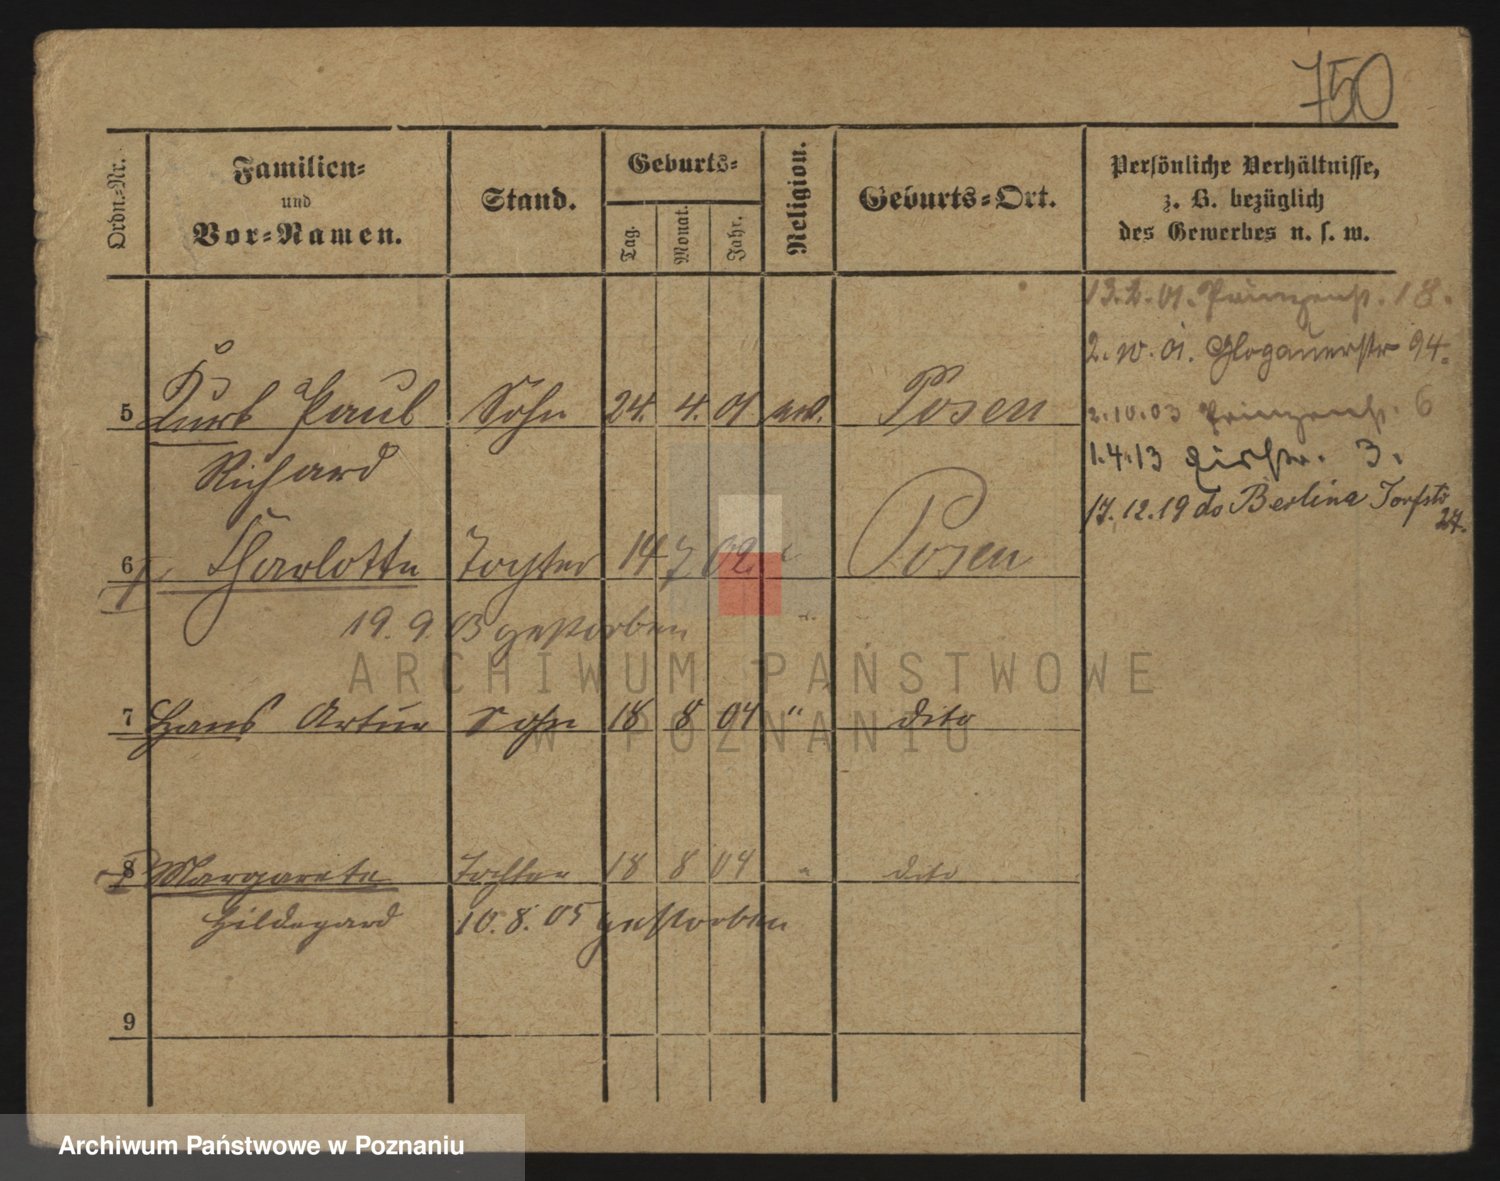 750
Ordn.-Nr.
Familien-
und
Vor-Namen.
Stand.
Geburts-
Tag.
Monat.
Jahr.
Religion.
Geburts-Ort.
Persönliche Verhältnisse,
z. B. bezüglich
des Gewerbes u. s. w.
13.2.01. Prinzenstr. 18.
2.10.01. Glogauerstr 94.
5 Kurt Paul Sohn 24. 4. 01 ev. Posen
Richard
2.10.03 Prinzenstr. 6
1.4.13 3.
17.12.19 do Berlina Torfstr
27.
6 Charlotte Tochter 14 7 02 " Posen
19.9.03 gestorben
ARCHIWUM PAŃSTWOWE
W POZNANIU
7 Hans Artur Sohn 18 8 04 " dito
8 Margarete Tochter 18 8 04 " dito
Hildegard 10.8.05 gestorben
9
Archiwum Państwowe w Poznaniu